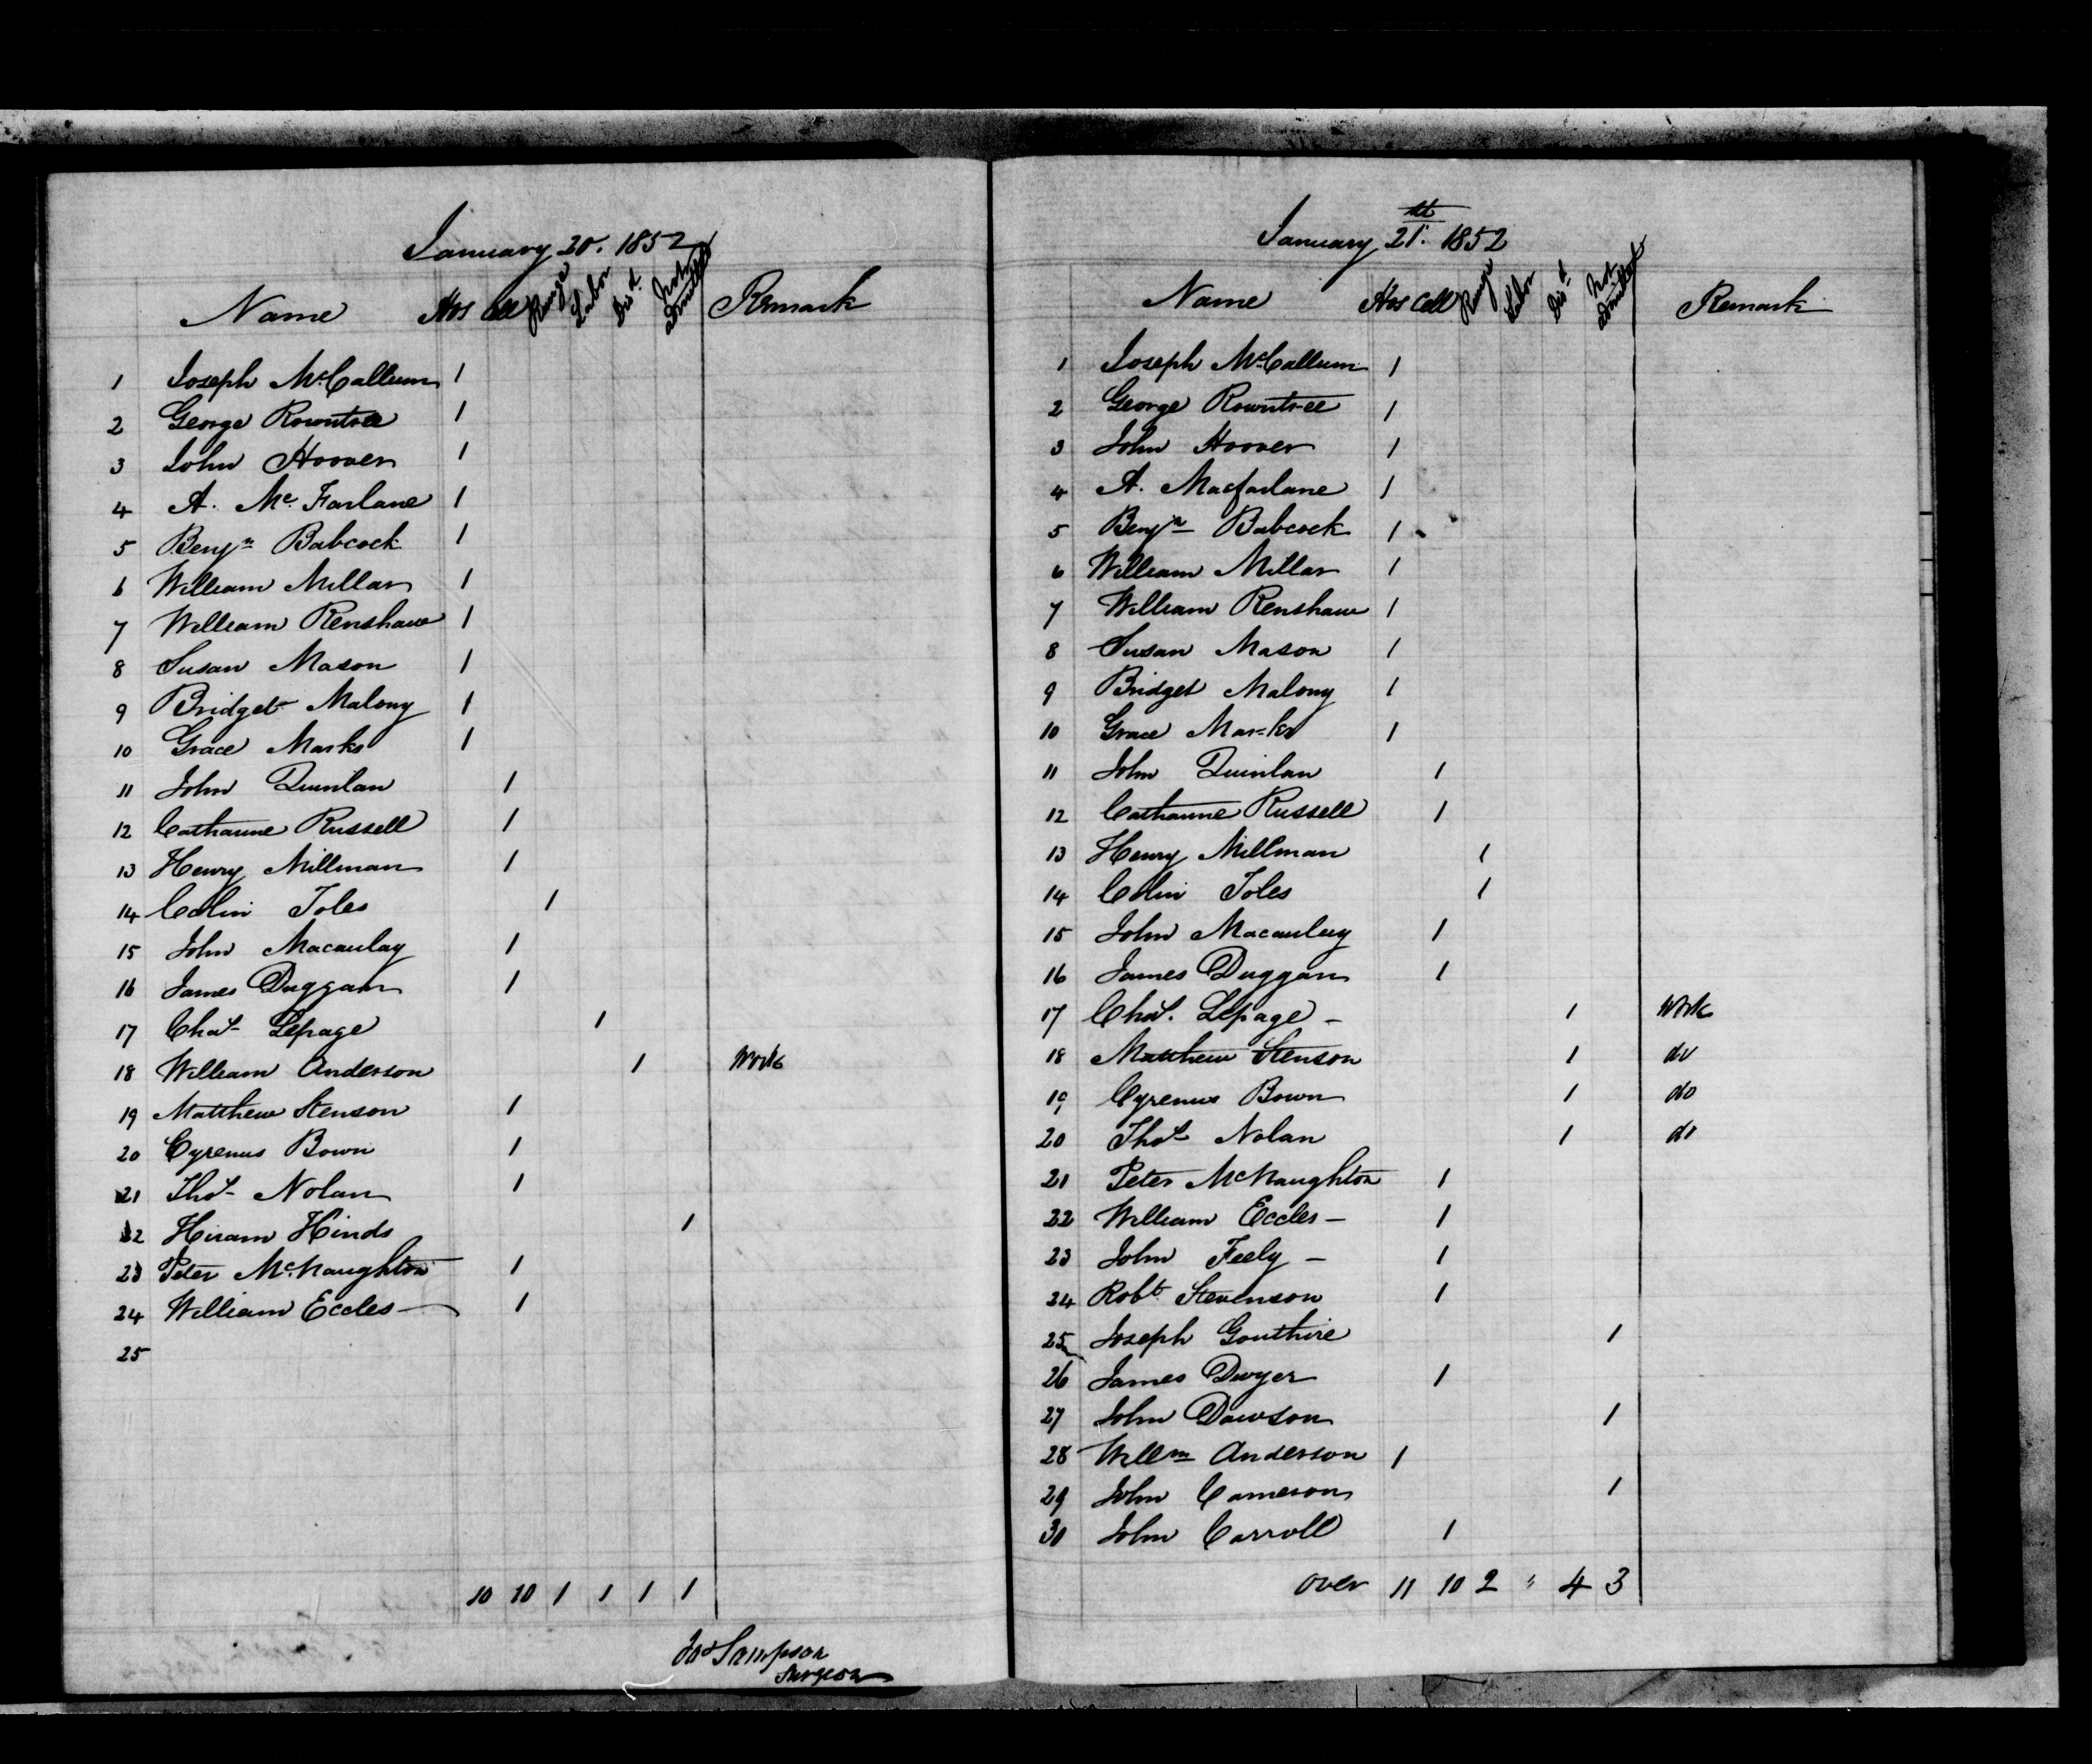 January 20. 1852
Name Hos Cell Range Labor Disd. Not admitted Remark
1 Joseph McCallum 1
2 George Rowntree 1
3 John Hoover 1
4 A. Mc. Farlane 1
5 Benjn Babcock 1
6 William Millar 1
7 William Renshaw 1
8 Susan Mason 1
9 Bridget Malony 1
10 Grace Marks 1
11 John Quinlan 1
12 Catharine Russell 1
13 Henry Millman 1
14 Colin Toles 1
15 John Macaulay 1
16 James Duggan 1
17 Chas. Lepage 1
18 William Anderson 1 Work
19 Matthew Stenson 1
20 Cyrenus Bown 1
21 Thos. Nolan 1
22 Hiram Hinds 1
23 Peter McNaughton 1
24 William Eccles — 1
25
10 10 1 1 1 1
Jas Sampson
Surgeon
January 21st. 1852
Name Hos Cell Range Labor Disd Not admitted Remark
1 Joseph McCallum 1
2 George Rowntree 1
3 John Hoover 1
4 A. Macfarlane 1
5 Benjn Babcock 1
6 William Millar 1
7 William Renshaw 1
8 Susan Mason 1
9 Bridget Malony 1
10 Grace Marks 1
11 John Quinlan 1
12 Catharine Russell 1
13 Henry Millman 1
14 Colin Toles 1
15 John Macauley 1
16 James Duggan 1
17 Chas. Lepage – 1 Work
18 Matthew Stenson 1 do
19 Cyrenus Bown 1 do
20 Thos. Nolan 1 do
21 Peter McNaughton 1
22 William Eccles – 1
23 John Feely – 1
24 Robt. Stevenson 1
25 Joseph Gouthire 1
26 James Dwyer 1
27 John Dawson 1
28 Willm Anderson 1
29 John Cameron 1
30 John Carroll 1
over 11 10 2 " 4 3